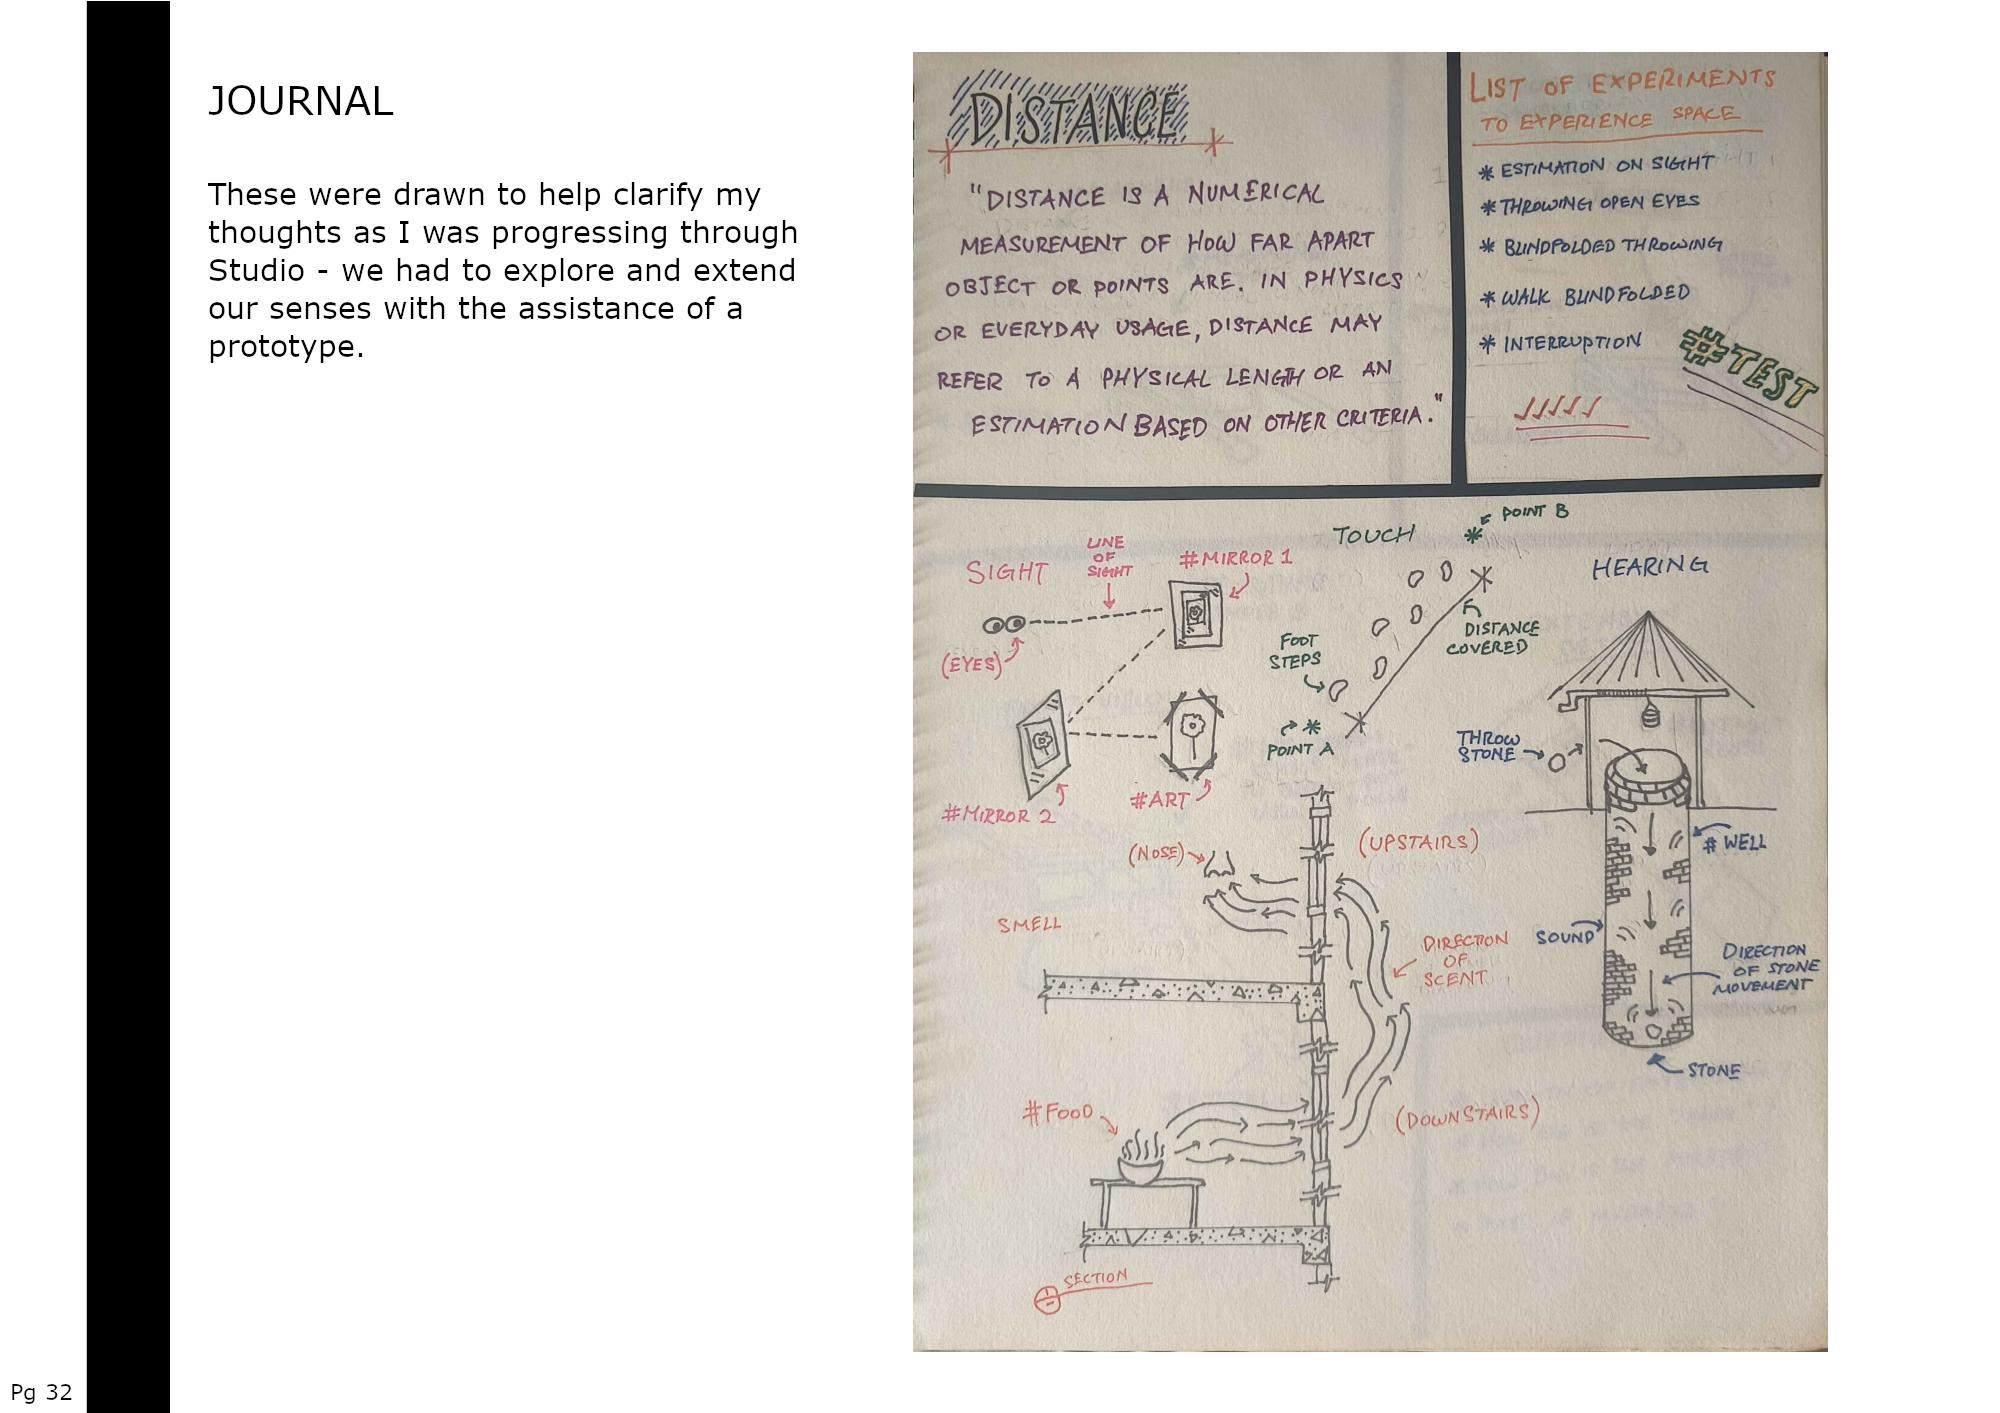 JOURNAL
These were drawn to help clarify my
thoughts as I was progressing through
Studio - we had to explore and extend
our senses with the assistance of a
prototype.
DISTANCE
"DISTANCE IS A NUMERICAL
MEASUREMENT OF HOW FAR APART
OBJECT OR POINTS ARE. IN PHYSICS
OR EVERYDAY USAGE, DISTANCE MAY
REFER TO A PHYSICAL LENGTH OR AN
ESTIMATION BASED ON OTHER CRITERIA."
LIST OF EXPERIMENTS
TO EXPERIENCE SPACE
* ESTIMATION ON SIGHT
* THROWING OPEN EYES
* BLINDFOLDED THROWING
* WALK BLINDFOLDED
* INTERRUPTION
#TEST
SIGHT
LINE
OF
SIGHT
#MIRROR 1
(EYES)
#MIRROR 2
#ART
TOUCH
POINT B
DISTANCE
COVERED
FOOT
STEPS
POINT A
HEARING
THROW
STONE
# WELL
SOUND
DIRECTION
OF STONE
MOVEMENT
STONE
(NOSE)
(UPSTAIRS)
SMELL
DIRECTION
OF
SCENT
#FOOD
(DOWNSTAIRS)
SECTION
Pg 32